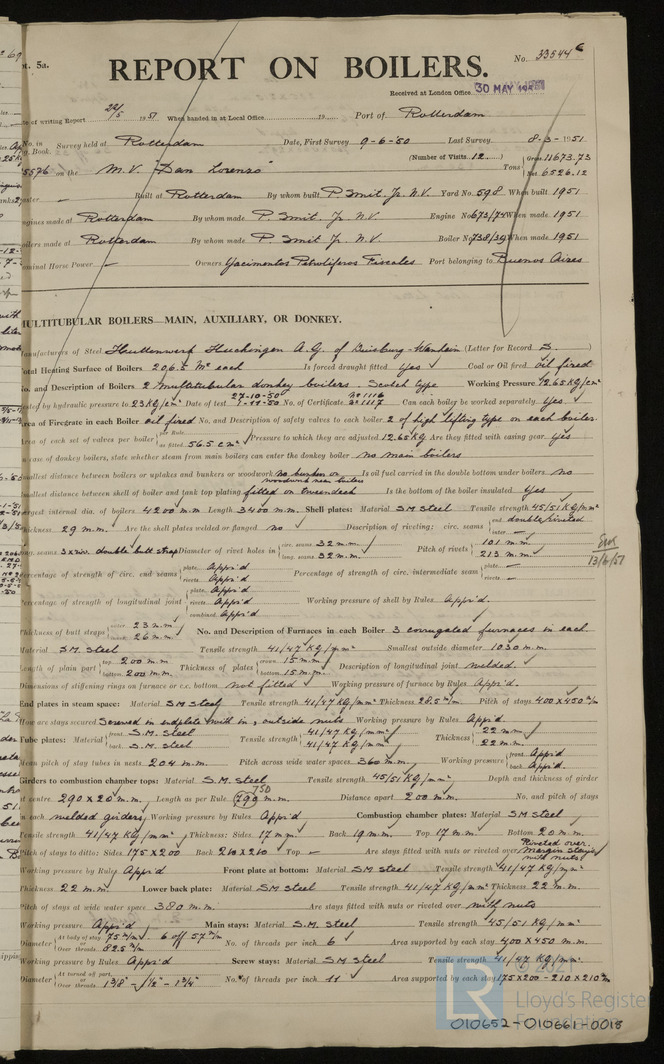 pt. 5a.
No. 33544c
REPORT ON BOILERS.
Received at London Office 30 MAY
of writing Report 22/5 1951 When handed in at Local Office 19 Port of Rotterdam
No. in Survey held at Rotterdam Date, First Survey 9-6-'50 Last Survey 8-3-1951
Book. (Number of Visits 12 ) Gross 11673.73
5576 on the M.V. "San Lorenzo" Tons Net 6526.12
Master — Built at Rotterdam By whom built P. Smit. Jr. N.V. Yard No. 598 When built 1951
Engines made at Rotterdam By whom made P. Smit Jr. N.V. Engine No 673/74 When made 1951
Boilers made at Rotterdam By whom made P. Smit Jr. N.V. Boiler No 738/39 When made 1951
Nominal Horse Power — Owners Yacimentos Petroliferos Fiscales Port belonging to Buenos Aires
MULTITUBULAR BOILERS—MAIN, AUXILIARY, OR DONKEY.
Manufacturers of Steel Huttenwerk Huckingen A.G. of Duisburg-Wanheim (Letter for Record S. )
Total Heating Surface of Boilers 206.5 M² each Is forced draught fitted Yes Coal or Oil fired oil fired
No. and Description of Boilers 2 multitubular donkey boilers. Scotch type Working Pressure 12.65 KG/cm²
Tested by hydraulic pressure to 23 KG/cm² Date of test 27-10-50 7-11-50 No. of Certificate No 1116 No 1117 Can each boiler be worked separately Yes
Area of Firegrate in each Boiler oil fired No. and Description of safety valves to each boiler 2 of high lifting type on each boiler
Area of each set of valves per boiler per Rule as fitted 56.5 cm² Pressure to which they are adjusted 12.65 KG Are they fitted with easing gear yes
In case of donkey boilers, state whether steam from main boilers can enter the donkey boiler no main boilers
Smallest distance between boilers or uptakes and bunkers or woodwork no bunker or woodwork near boilers Is oil fuel carried in the double bottom under boilers no
Smallest distance between shell of boiler and tank top plating fitted on tween-deck Is the bottom of the boiler insulated yes
Largest internal dia. of boilers 4200 mm Length 3400 mm. Shell plates: Material SM Steel Tensile strength 45/51 KG/mm²
Thickness 29 m.m. Are the shell plates welded or flanged no Description of riveting: circ. seams end double riveted inter —
long. seams 3 x riv. double butt strap Diameter of rivet holes in circ. seams 32 mm long. seams 32 mm Pitch of rivets 213 m.m.
Percentage of strength of circ. end seams plate Appr'd rivets Appr'd Percentage of strength of circ. intermediate seam plate — rivets —
Percentage of strength of longitudinal joint plate Appr'd rivets Appr'd combined Appr'd Working pressure of shell by Rules Appr'd.
13/6/51
Thickness of butt straps outer 23 mm inner 26 mm No. and Description of Furnaces in each Boiler 3 corrugated furnaces in each
Material SM Steel Tensile strength 41/47 KG/mm² Smallest outside diameter 1030 m.m.
Length of plain part top 200 m.m. bottom 200 m.m. Thickness of plates crown 15 m.m. bottom 15 m.m. Description of longitudinal joint welded
Dimensions of stiffening rings on furnace or c.c. bottom not fitted Working pressure of furnace by Rules Appr'd.
End plates in steam space: Material SM Steel Tensile strength 41/47 KG/mm² Thickness 28.5 m. Pitch of stays 400 x 450 m/m
How are stays secured Screwed in endplate with in, outside nuts Working pressure by Rules Appr'd
Tube plates: Material front S.M. Steel back S.M. Steel Tensile strength 41/47 KG/mm² 41/47 KG/mm² Thickness 22 mm 22 m.m.
Mean pitch of stay tubes in nests 204 m.m. Pitch across wide water spaces 360 mm Working pressure front Appr'd back Appr'd
Girders to combustion chamber tops: Material S.M. Steel Tensile strength 45/51 KG/mm² Depth and thickness of girder
at centre 290 x 20 m.m. Length as per Rule 790 750 m.m. Distance apart 200 m.m. No. and pitch of stays
in each welded girders Working pressure by Rules Appr'd Combustion chamber plates: Material SM Steel
Tensile strength 41/47 KG/mm² Thickness: Sides 17 mm Back 19 mm Top 17 m.m. Bottom 20 m.m.
Pitch of stays to ditto: Sides 175 x 200 Back 210 x 210 Top — Are stays fitted with nuts or riveted over Riveted over margin stays with nuts
Working pressure by Rules Appr'd Front plate at bottom: Material SM Steel Tensile strength 41/47 KG/mm²
Thickness 22 m.m. Lower back plate: Material SM Steel Tensile strength 41/47 KG/mm² Thickness 22 m.m.
Pitch of stays at wide water space 380 m.m. Are stays fitted with nuts or riveted over with nuts
Working pressure Appr'd Main stays: Material S.M. Steel Tensile strength 45/51 KG/mm²
Diameter At body of stay 75 m/m Over threads 82.5 m/m 6 off 57 m/m No. of threads per inch 6 Area supported by each stay 400 x 450 m.m.
Working pressure by Rules Appr'd Screw stays: Material SM Steel Tensile strength 41/47 KG/mm²
Diameter At turned off part Over threads 1 3/8" - 1 1/2" - 1 3/4" No. of threads per inch 11 Area supported by each stay 175 x 200 - 210 x 210 m
© 2021
LR Lloyd's Register Foundation
010652-010661-0018